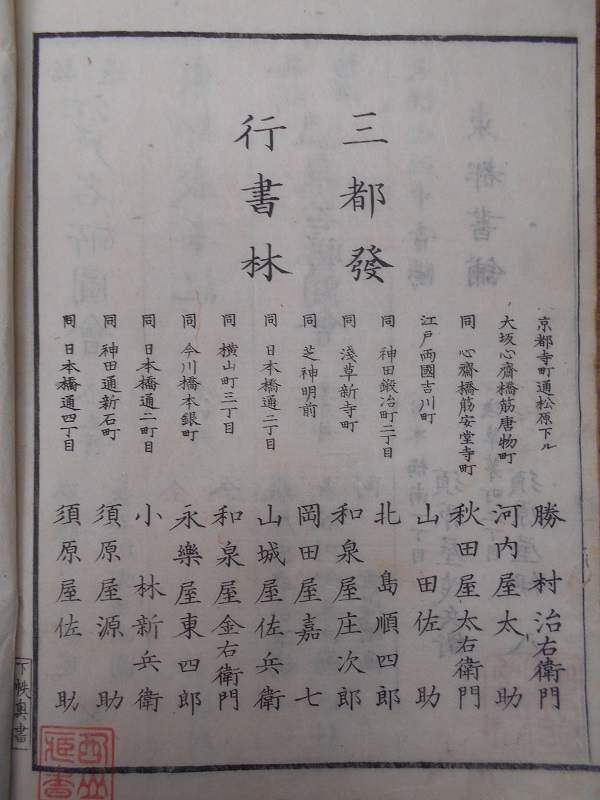 三都發
行書林
京都寺町通松原下ル 勝村治右衛門
大坂心齋橋筋唐物町 河内屋太助
同 心齋橋筋安堂寺町 秋田屋太右衛門
江戸両國吉川町 山田佐助
同 神田鍛冶町二丁目 北島順四郎
同 淺草新寺町 和泉屋庄次郎
同 芝神明前 岡田屋嘉七
同 日本橋通二丁目 山城屋佐兵衛
同 横山町三丁目 和泉屋金右衛門
同 今川橋本銀町 永樂屋東四郎
同 日本橋通二町目 小林新兵衛
同 神田通新石町 須原屋源助
同 日本橋通四丁目 須原屋佐助
下帙奥書